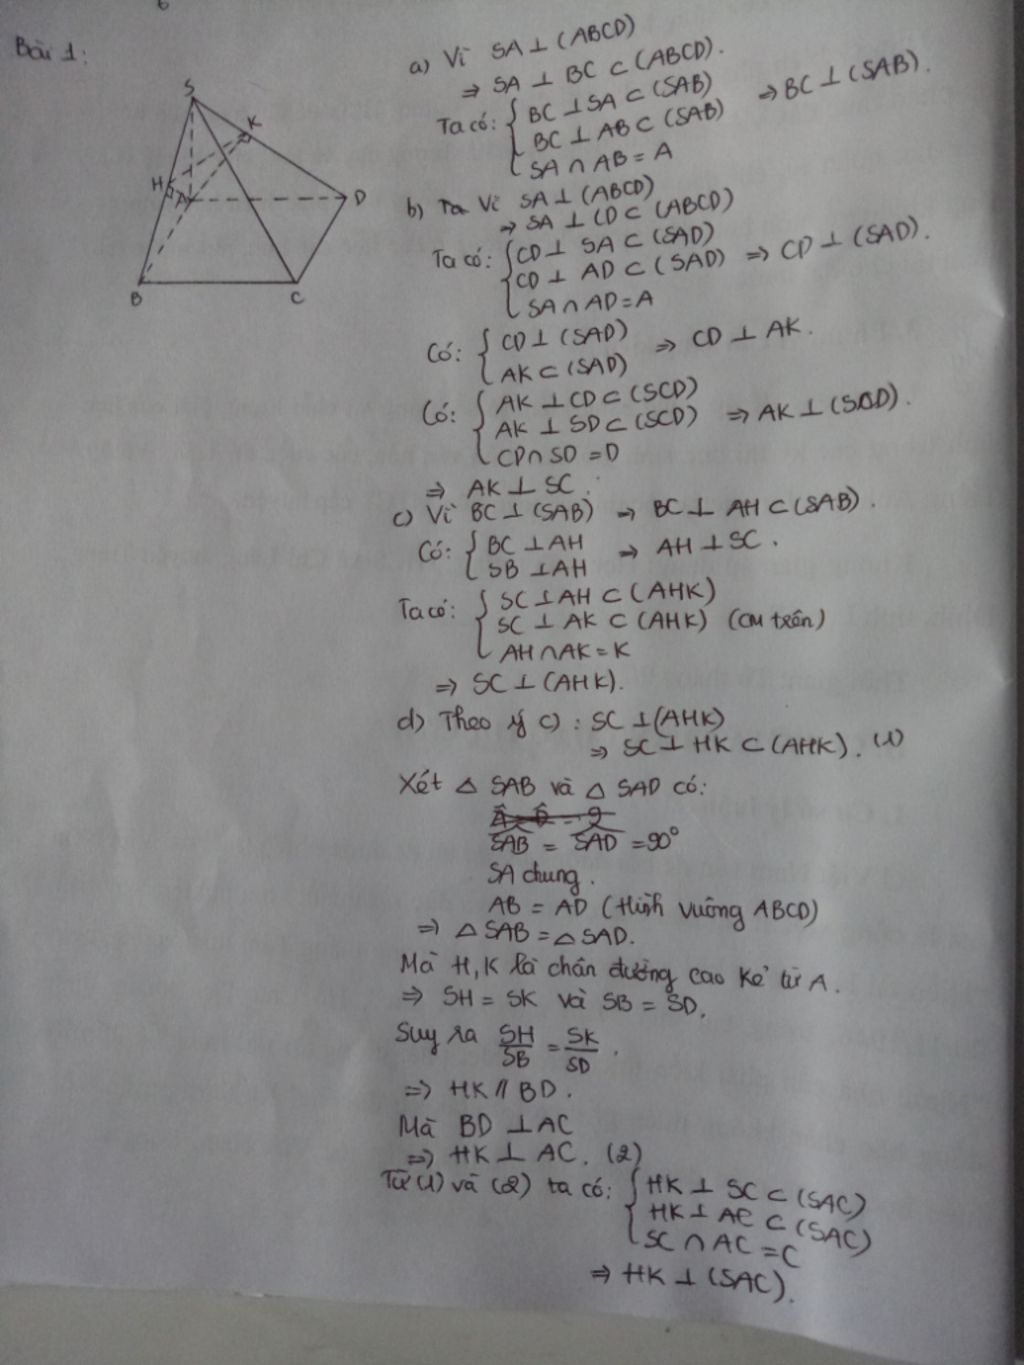 Bài 1:
S
K
H
A
D
B
C
a) Vì SA ⊥ (ABCD)
⇒ SA ⊥ BC ⊂ (ABCD).
Ta có: { BC ⊥ SA ⊂ (SAB)
BC ⊥ AB ⊂ (SAB) ⇒ BC ⊥ (SAB).
SA ∩ AB = A
b) Ta Vì SA ⊥ (ABCD)
⇒ SA ⊥ CD ⊂ (ABCD)
Ta có: { CD ⊥ SA ⊂ (SAD)
CD ⊥ AD ⊂ (SAD) ⇒ CD ⊥ (SAD).
SA ∩ AD = A
Có: { CD ⊥ (SAD) ⇒ CD ⊥ AK.
AK ⊂ (SAD)
Có: { AK ⊥ CD ⊂ (SCD)
AK ⊥ SD ⊂ (SCD) ⇒ AK ⊥ (SCD).
CD ∩ SD = D
⇒ AK ⊥ SC.
c) Vì BC ⊥ (SAB) ⇒ BC ⊥ AH ⊂ (SAB).
Có: { BC ⊥ AH ⇒ AH ⊥ SC.
SB ⊥ AH
Ta có: { SC ⊥ AH ⊂ (AHK)
SC ⊥ AK ⊂ (AHK) (CM trên)
AH ∩ AK = K
⇒ SC ⊥ (AHK).
d) Theo ý c) : SC ⊥ (AHK)
⇒ SC ⊥ HK ⊂ (AHK). (1)
Xét △ SAB và △ SAD có:
SAB = SAD = 90°
SA chung.
AB = AD (Hình vuông ABCD)
⇒ △ SAB = △ SAD.
Mà H, K là chân đường cao kẻ từ A.
⇒ SH = SK và SB = SD.
Suy ra SH/SB = SK/SD.
⇒ HK // BD.
Mà BD ⊥ AC
⇒ HK ⊥ AC. (2)
Từ (1) và (2) ta có: { HK ⊥ SC ⊂ (SAC)
HK ⊥ AC ⊂ (SAC)
SC ∩ AC = C
⇒ HK ⊥ (SAC).